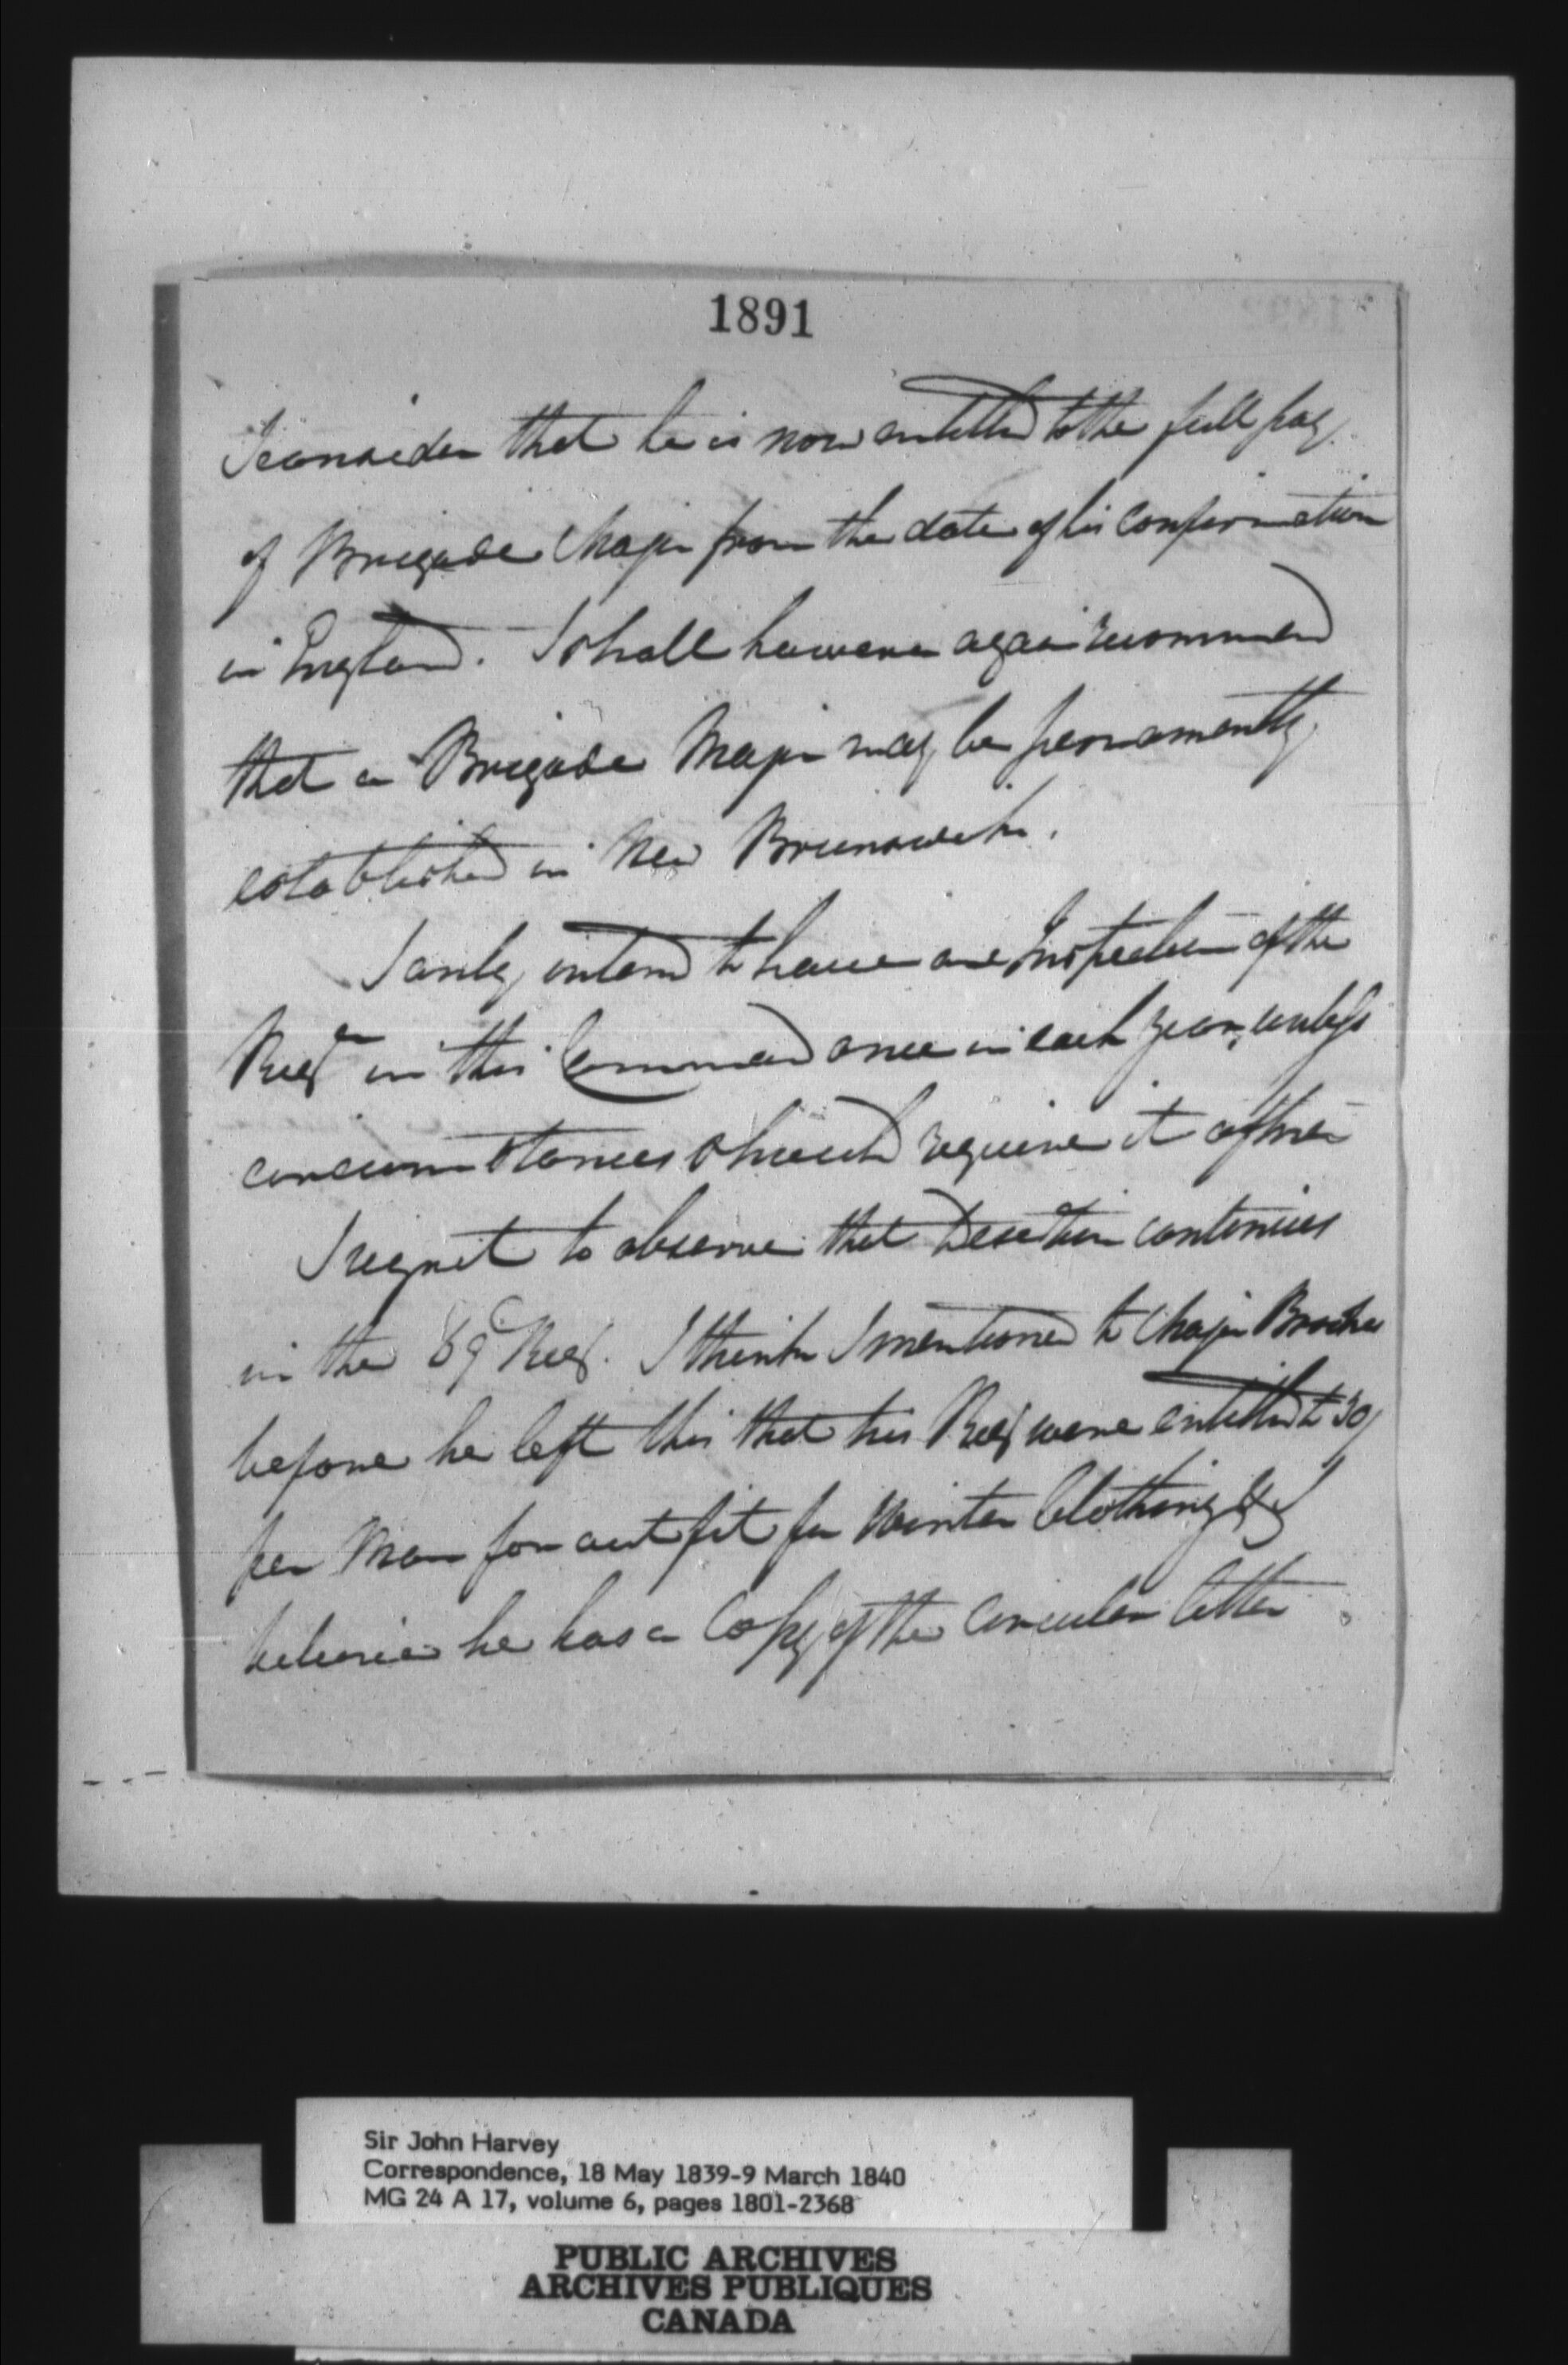 1891
I consider that he is now entitled to the full pay
of Brigade Major from the date of his confirmation
in England. I shall however again recommend
that a Brigade Major may be permanently
established in New Brunswick.
I only intend to have one Inspection of the
Regts in this Command once in each year, unless
circumstances should require it often
I regret to observe that Desertion continues
in the 69 Regt. I think I mentioned to Major
before he left this that his Regt were entitled to 30/
per Man for outfit for Winter Clothing & I
believe he has a Copy of the Circular letter
Sir John Harvey
Correspondence, 18 May 1839-9 March 1840
MG 24 A 17, volume 6, pages 1801-2368
PUBLIC ARCHIVES
ARCHIVES PUBLIQUES
CANADA